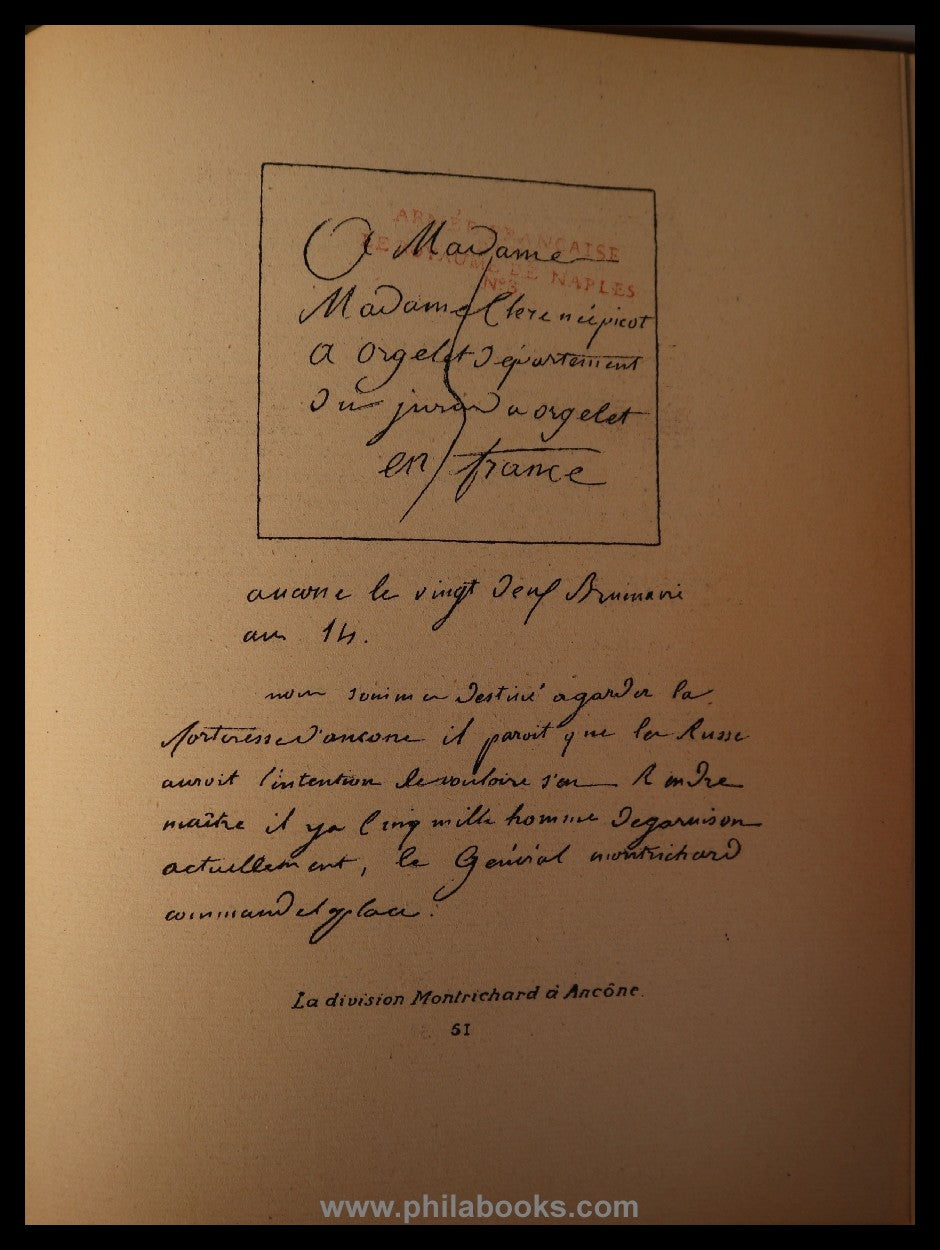 ARMÉE FRANÇAISE
DE ROYAUME DE NAPLES
N° 3
A Madame
Madame Clerc néépicot
a orgelet département
du jura a orgelet
en france
ancone le vingt deuf Brumaire
an 14.
nous sommes destiné agarder la
forteresse d'ancone il paroit que les Russe
auroit l'intention de vouloire s'en Rendre
maître il ya Cinq mille homme degarnison
actuellement, le Général montrichard
commande la place.
La division Montrichard à Ancône.
51
www.philabooks.com